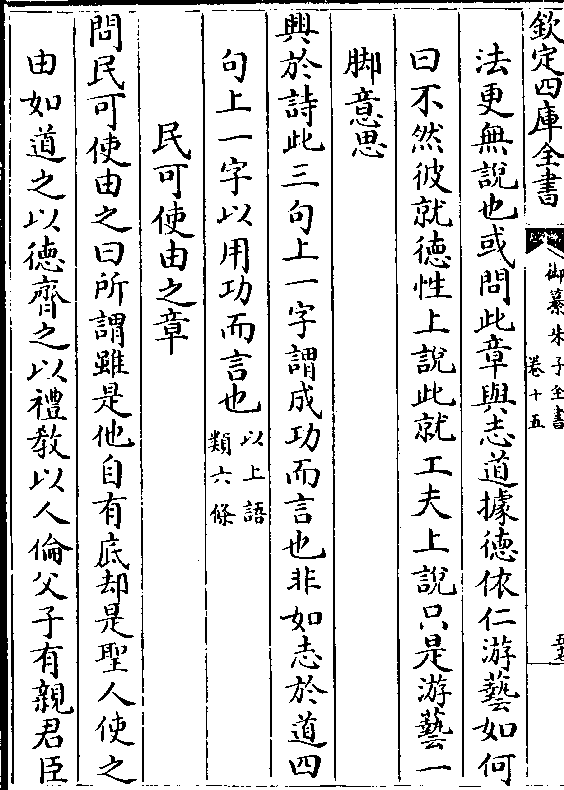 欽定四庫全書
御纂朱子全書
卷十五
法更無說也或問此章與志道據德依仁游藝如何
曰不然彼就德性上說此就工夫上說只是游藝一
脚意思
興於詩此三句上一字謂成功而言也非如志於道四
句上一字以用功而言也以上語
類六條
民可使由之章
問民可使由之曰所謂雖是他自有底却是聖人使之
由如道之以德齊之以禮教以人倫父子有親君臣